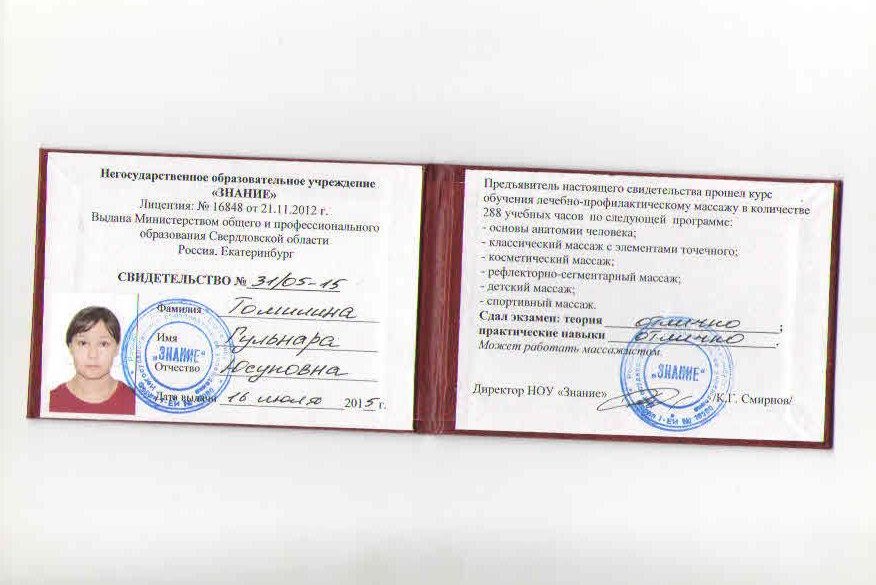 Негосударственное образовательное учреждение
«ЗНАНИЕ»
Лицензия: № 16848 от 21.11.2012 г.
Выдана Министерством общего и профессионального
образования Свердловской области
Россия. Екатеринбург
СВИДЕТЕЛЬСТВО № 31/05-15
Фамилия Томилина
Имя Гульнара
Отчество Юсуповна
Дата выдачи 16 июля 2015 г.
"ЗНАНИЕ"
Предъявитель настоящего свидетельства прошел курс
обучения лечебно-профилактическому массажу в количестве
288 учебных часов по следующей программе:
- основы анатомии человека;
- классический массаж с элементами точечного;
- косметический массаж;
- рефлекторно-сегментарный массаж;
- детский массаж;
- спортивный массаж.
Сдал экзамен: теория отлично ;
практические навыки отлично .
Может работать массажистом
"ЗНАНИЕ"
Директор НОУ «Знание» /К.Г. Смирнов/